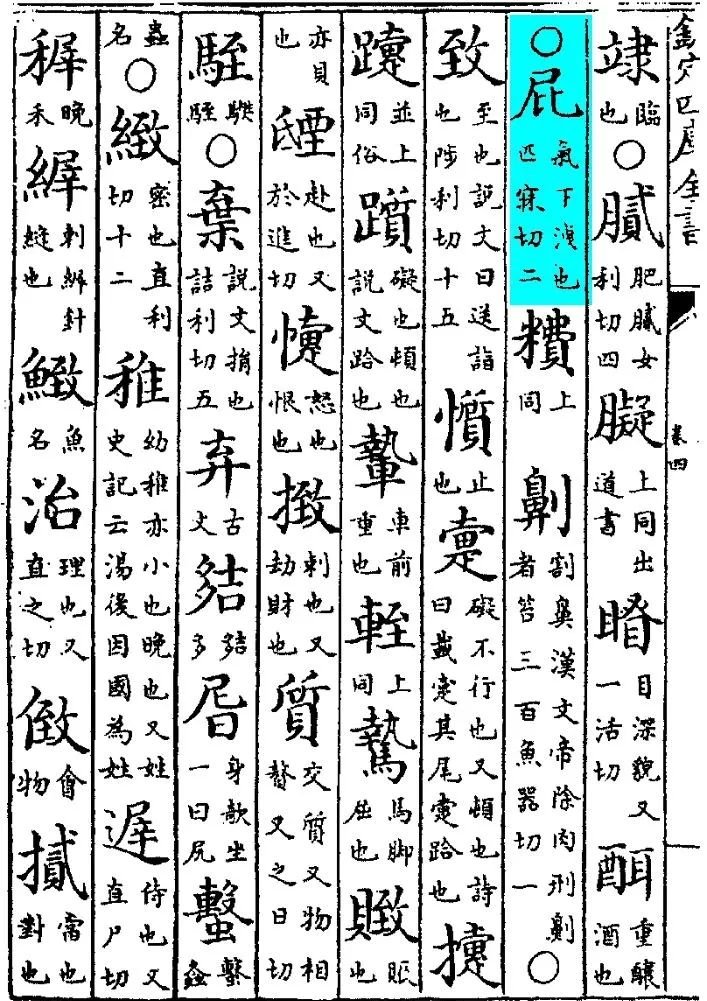 欽定四庫全書 卷四
䇐臨也○膩肥膩女利切四 上同出道書 目深貌又一活切 重釀酒也
○屁氣下洩也匹寐切二 上同劓割鼻漢文帝除肉刑劓者笞三百魚器切一○
致至也說文曰送詣也陟利切十五懫止也疐礙不行也又頓也詩曰載疐其尾疐跲也
並上同俗躓礙也頓也說文跲也 車前重也輊上同騺馬脚屈也
亦貝也 赴也又於進切懥怒也恨也㨖刺也又劫財也質交質又物相贅又之日切
駤 ○棄說文捐也詰利切五弃古文 身欹坐一曰尻蟿蟿螽
蟲名○緻密也直利切十二稚幼稚亦小也晚也又姓史記云湯後因國為姓遟待也又直尸切
稺晚禾 針縫也 魚名治理也又直之切 會物 當也對也